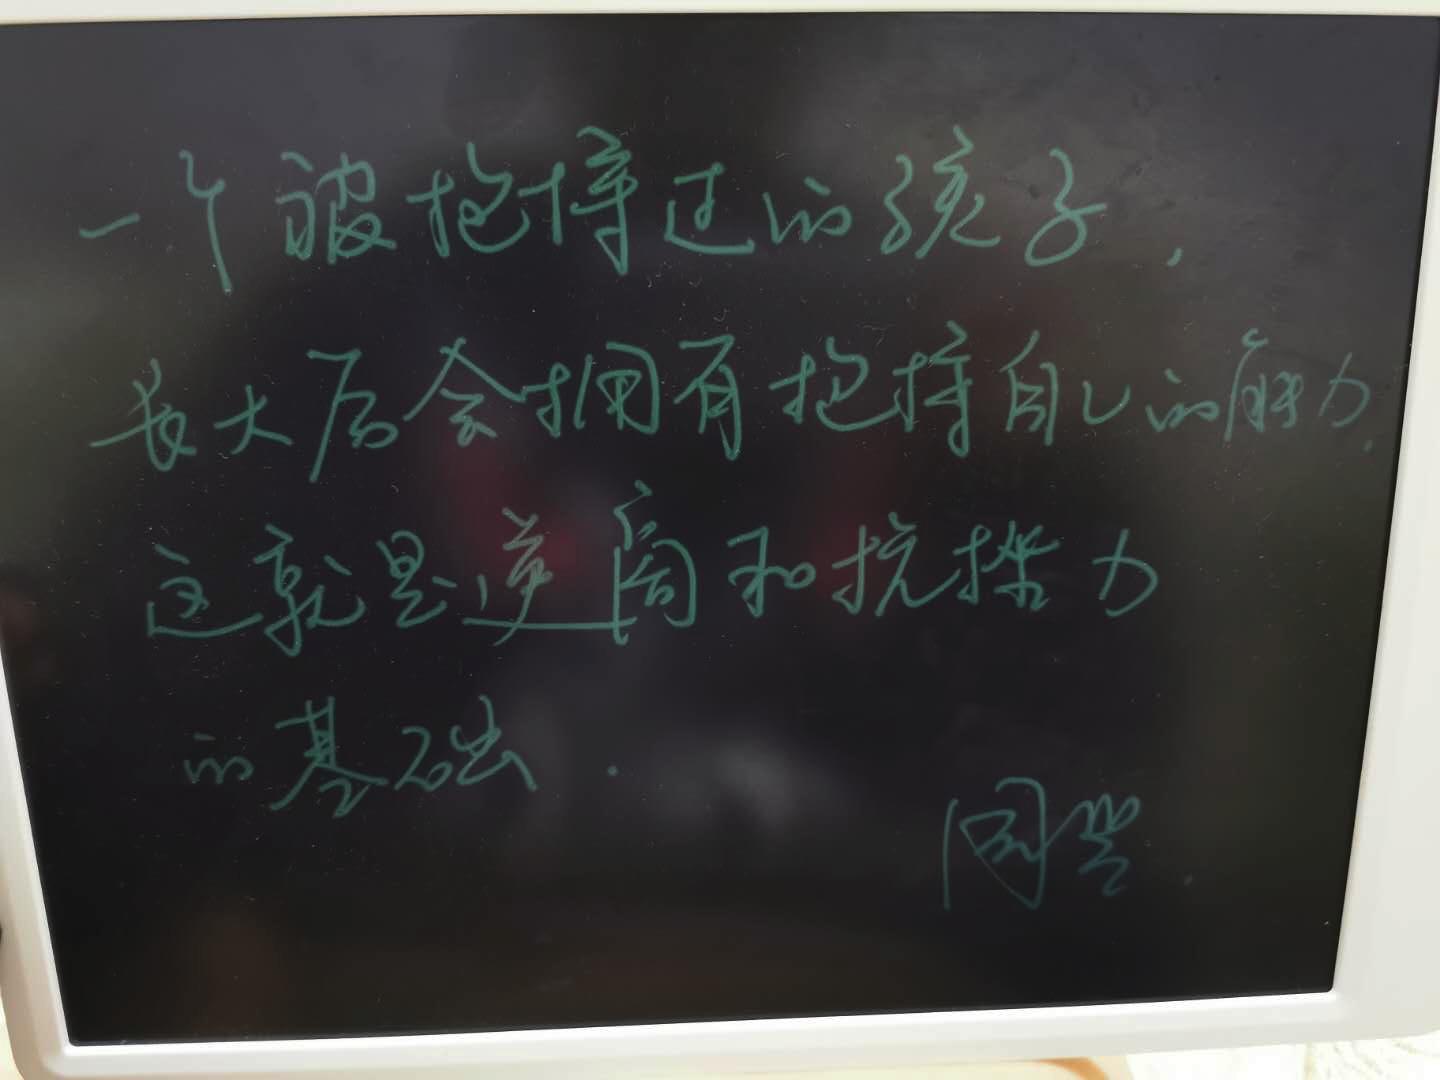 一个被抱持过的孩子,
长大后会拥有抱持自己的能力.
这就是逆商和抗挫力
的基础.